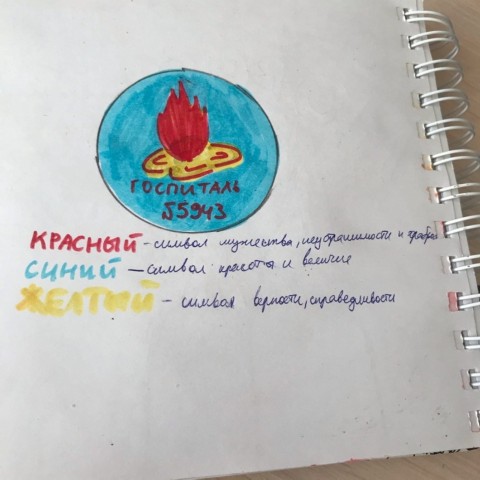 ГОСПИТАЛЬ
№5943
КРАСНЫЙ - символ мужества, неустрашимости и
СИНИЙ — символ красоты и величие
ЖЕЛТЫЙ - символ верности, справедливости